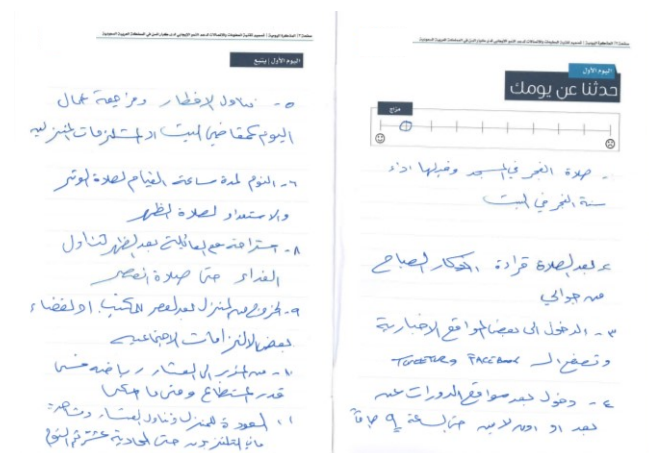 اليوم الأول
حدثنا عن يومك
مزاج
- صلاة الفجر في المسجد وقبلها اداء
سنة الفجر في البيت
٢- بعد الصلاة قراءة اذكار الصباح
من جوالي
٣- الدخول الى بعض المواقع الاخبارية
وتصفح الـ FACEBOOK و TWEETER
٤- دخول بعد مواقع الدورات عن
بعد او اون لاين حتى الساعة ٩ صباحاً
اليوم الأول | ينبع
٥- تناول الافطار ومراجعة اعمال
اليوم كمقاضي البيت او المستلزمات المنزلية
٦- النوم لمدة ساعة القيام لصلاة الوتر
والاستعداد لصلاة الظهر
٨- استراحة مع العائلة بعد الظهر لتناول
الغداء حتى صلاة العصر
٩- الخروج من المنزل بعد العصر للمكتب او لقضاء
بعض الالتزامات الاجتماعيه
١٠- من المغرب الى العشاء رياضة مشي
قدر المستطاع ومتى ما امكن
١١- العودة للمنزل وتناول العشاء ومشاهدة
التلفزيون حتى الحادية عشر ثم النوم